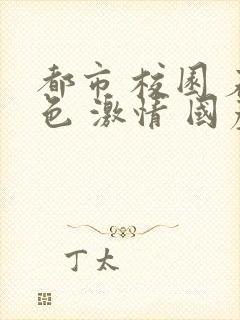 都市 校园 
色 激情 国
丁太